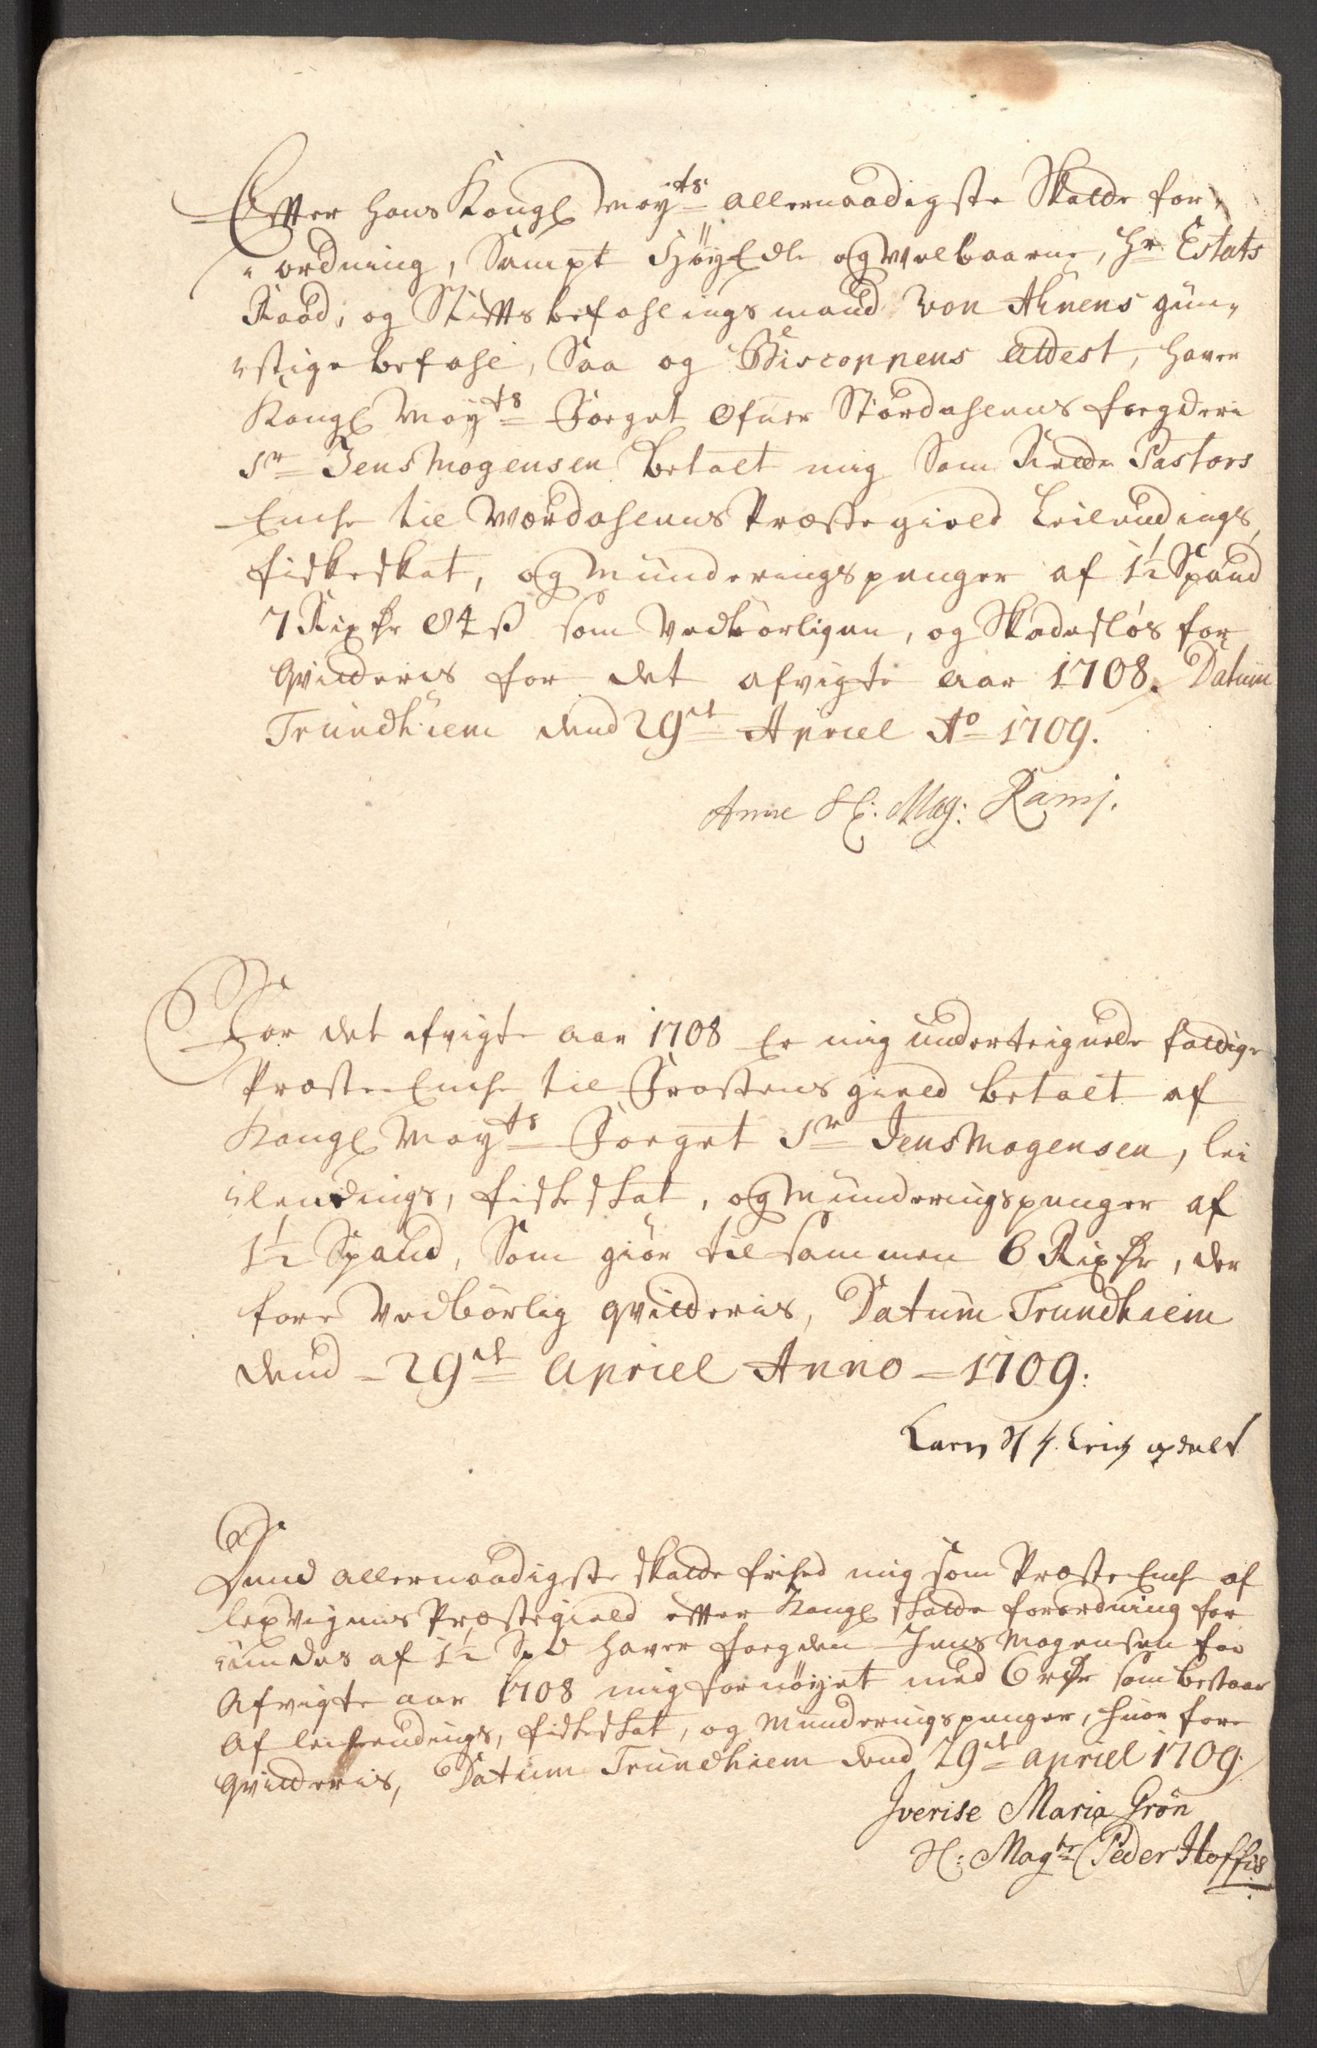 Effter Hans Kongl May:ts allernaadigste Skatte for,,
,,ordning, Sampt HøyEdle og Welbaarne, Hr Estats
Raad, og Stifftsbefahlings mand von Ahnens gün,,
,,stige befahl, Saa og Biscoppens Attest, haver
Kongl May:ts Foeget ofuer Størdahlens foegderi
Sr Jens Mogensen betalt mig Som Pastors
Enche til Værdahlens Præstegield Leilendings,
fiskeskat, og Munderingspenger af 1½ Spand
7 Rixdr 84 s som Vedbørligen, og Skadesløs for
qvitteris for det afvigte aar 1708. Datum
Trundhiem dend 29de Apriel Ao 1709.
Anne Sl: Mag: Rami.
For det afvigte aar 1708 Er mig underteignede fattige
Præste Enche til Frostens gield betalt af
Kongl May:ts Foeget Sr Jens Mogensen, lei
,,lendings, fiskeskat, og Munderingspenger af
1½ Spand, Som giør tilsammen 6 Rixdr, der
fore Vedbørlig qvitteris, Datum Trundhiem
dend 29de Apriel Anno 1709:
Karen Sl
Dend allernaadigste skatte frihed mig som Præste Enche af
Lexvigens Præstegield effter Kongl skatte forordning for
,,undes af 1½ Spd haver foegden Jens Mogensen for
Afvigte aar 1708 mig fornøyet med 6 rdr som bestaar
Af leilendings, fiskeskat, og Munderingspenger, huor fore
qvitteris, Datum Trundhiem dend 29de apriel 1709.
Iverise Maria Grøn
Sl: Magtr Peder Hoffis